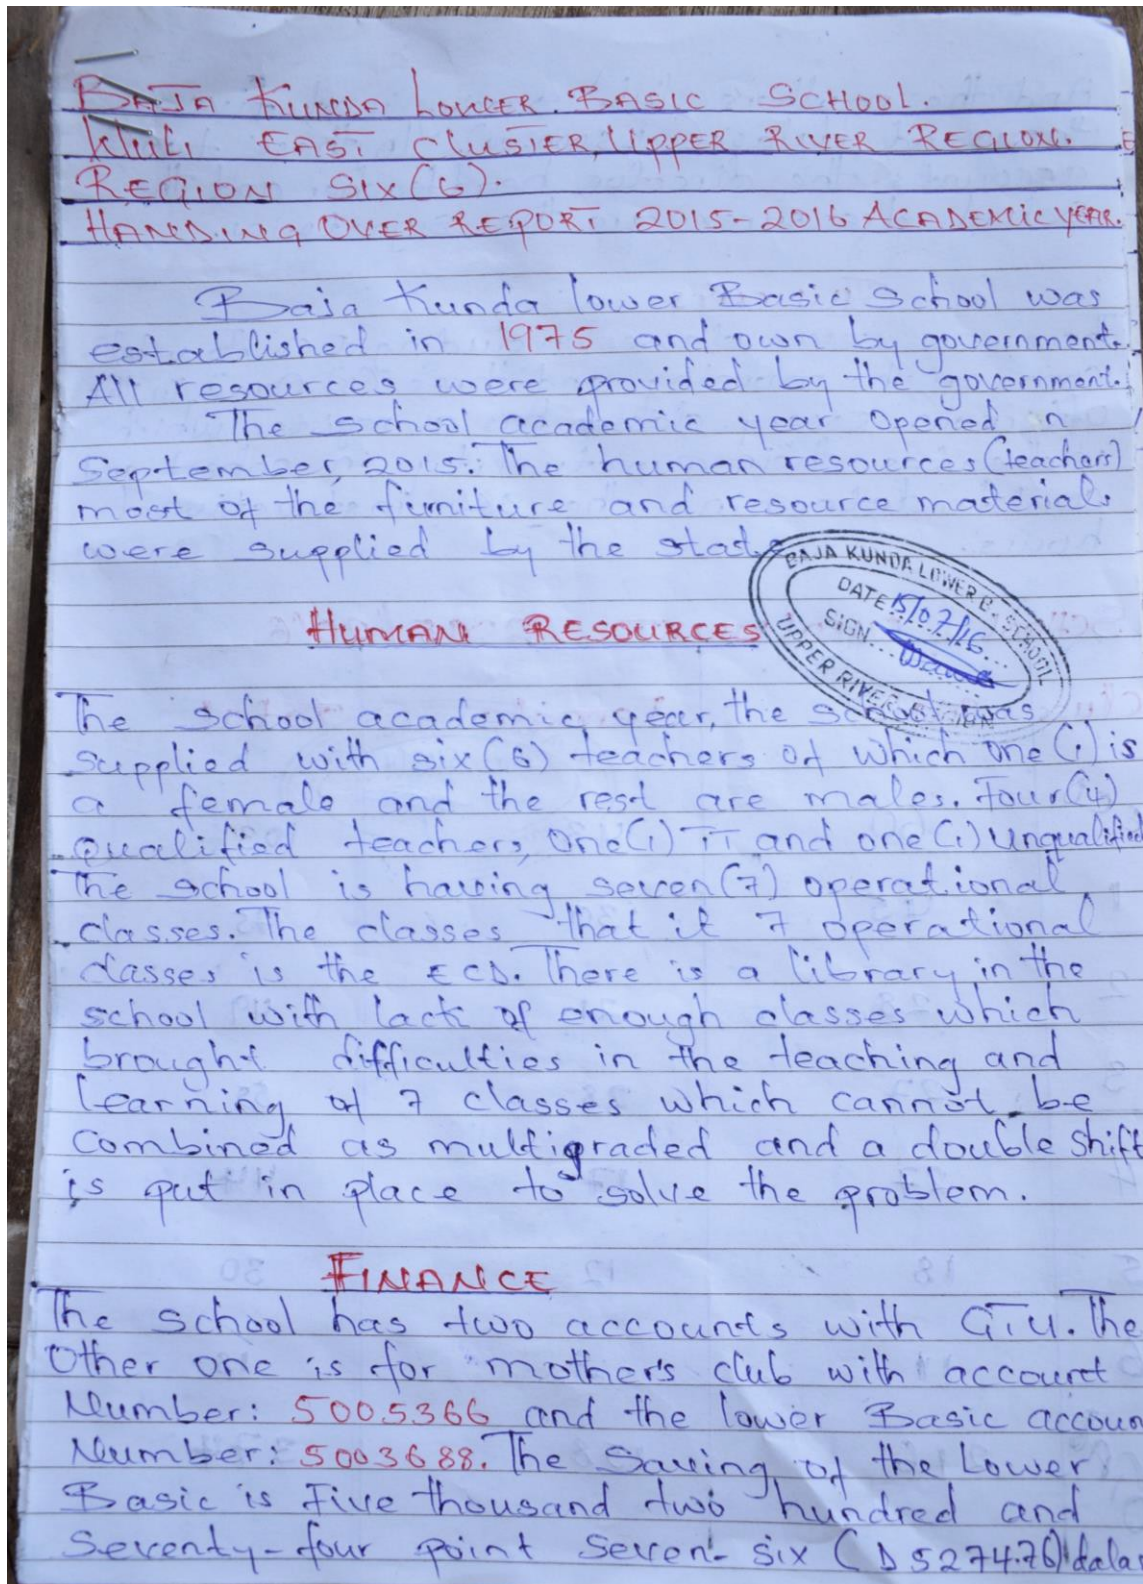 BAJA KUNDA LOWER BASIC SCHOOL.
EAST CLUSTER, UPPER RIVER REGION.
REGION SIX (6).
HANDING OVER REPORT 2015-2016 ACADEMIC YEAR.
Baja Kunda lower Basic School was
established in 1975 and own by government.
All resources were provided by the government.
The school academic year opened n
September, 2015. The human resources (teachers)
most of the furniture and resource materials
were supplied by the state
BAJA KUNDA LOWER B. SCHOOL
DATE 15/07/16
SIGN
UPPER RIVER REGION
HUMAN RESOURCES
The school academic year, the school was
supplied with six (6) teachers of which one (1) is
a female and the rest are males. Four (4)
qualified teachers, One (1) TT and one (1) unqualified
The school is having seven (7) operational
classes. The classes that it 7 operational
classes is the ECD. There is a library in the
school with lack of enough classes which
brought difficulties in the teaching and
learning of 7 classes which cannot be
combined as multigraded and a double shift
is put in place to solve the problem.
FINANCE
The school has two accounts with GTU. The
Other one is for mother's club with account
Number: 5005366 and the lower Basic accoun
Number: 5003688. The Saving of the Lower
Basic is Five thousand two hundred and
Seventy-four point Seven-six (D5274.76) dalas